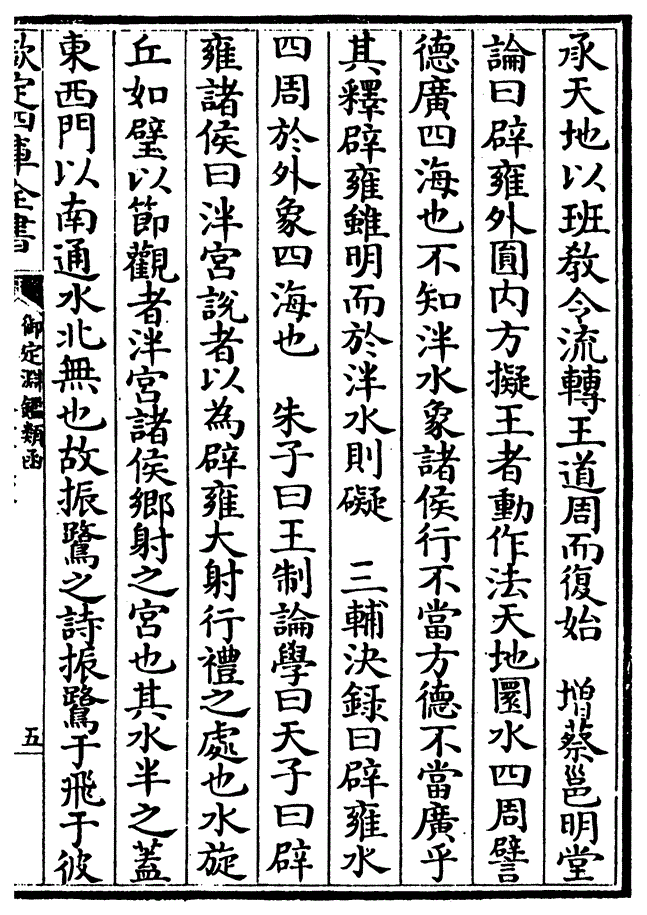 承天地以班敎令流轉王道周而復始　增蔡邕明堂
論曰辟雍外圓内方擬王者動作法天地圜水四周譬
德廣四海也不知泮水象諸侯行不當方德不當廣乎
其釋辟雍雖明而於泮水則礙　三輔決録曰辟雍水
四周於外象四海也　朱子曰王制論學曰天子曰辟
雍諸侯曰泮宮說者以為辟雍大射行禮之處也水旋
丘如璧以節觀者泮宮諸侯鄉射之宮也其水半之蓋
東西門以南通水北無也故振鷺之詩振鷺于飛于彼
欽定四庫全書
御定淵鑑類函
五